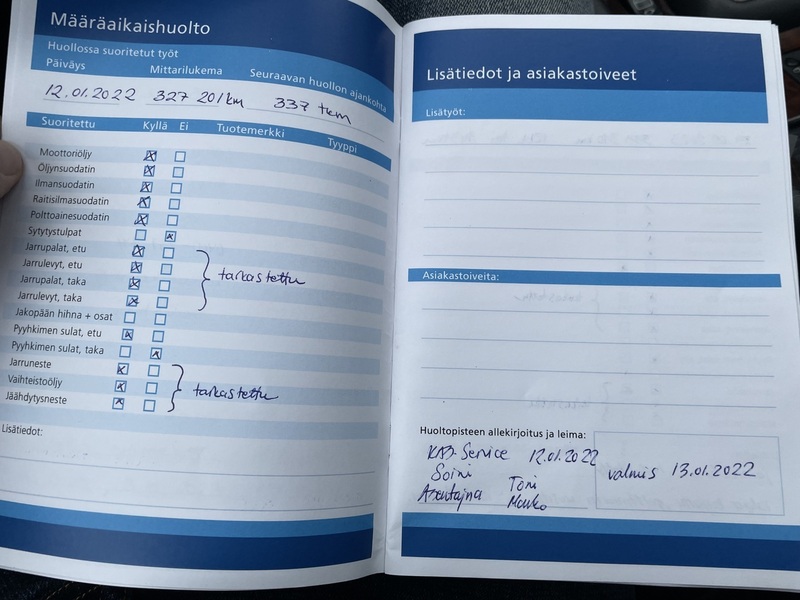 Määräaikaishuolto
Huollossa suoritetut työt
Päiväys Mittarilukema Seuraavan huollon ajankohta
12.01.2022 327 201/km 337 tkm
Suoritettu Kyllä Ei Tuotemerkki Tyyppi
Moottoriöljy
Öljynsuodatin
Ilmansuodatin
Raitisilmasuodatin
Polttoainesuodatin
Sytytystulpat
Jarrupalat, etu
Jarrulevyt, etu
tarkastettu
Jarrupalat, taka
Jarrulevyt, taka
Jakopään hihna + osat
Pyyhkimen sulat, etu
Pyyhkimen sulat, taka
Jarruneste
Vaihteistoöljy
tarkastettu
Jäähdytysneste
Lisätiedot:
Lisätiedot ja asiakastoiveet
Lisätyöt:
Asiakastoiveita:
Huoltopisteen allekirjoitus ja leima:
Service 12.01.2022
Soini Toni
Asentajna
valmis 13.01.2022